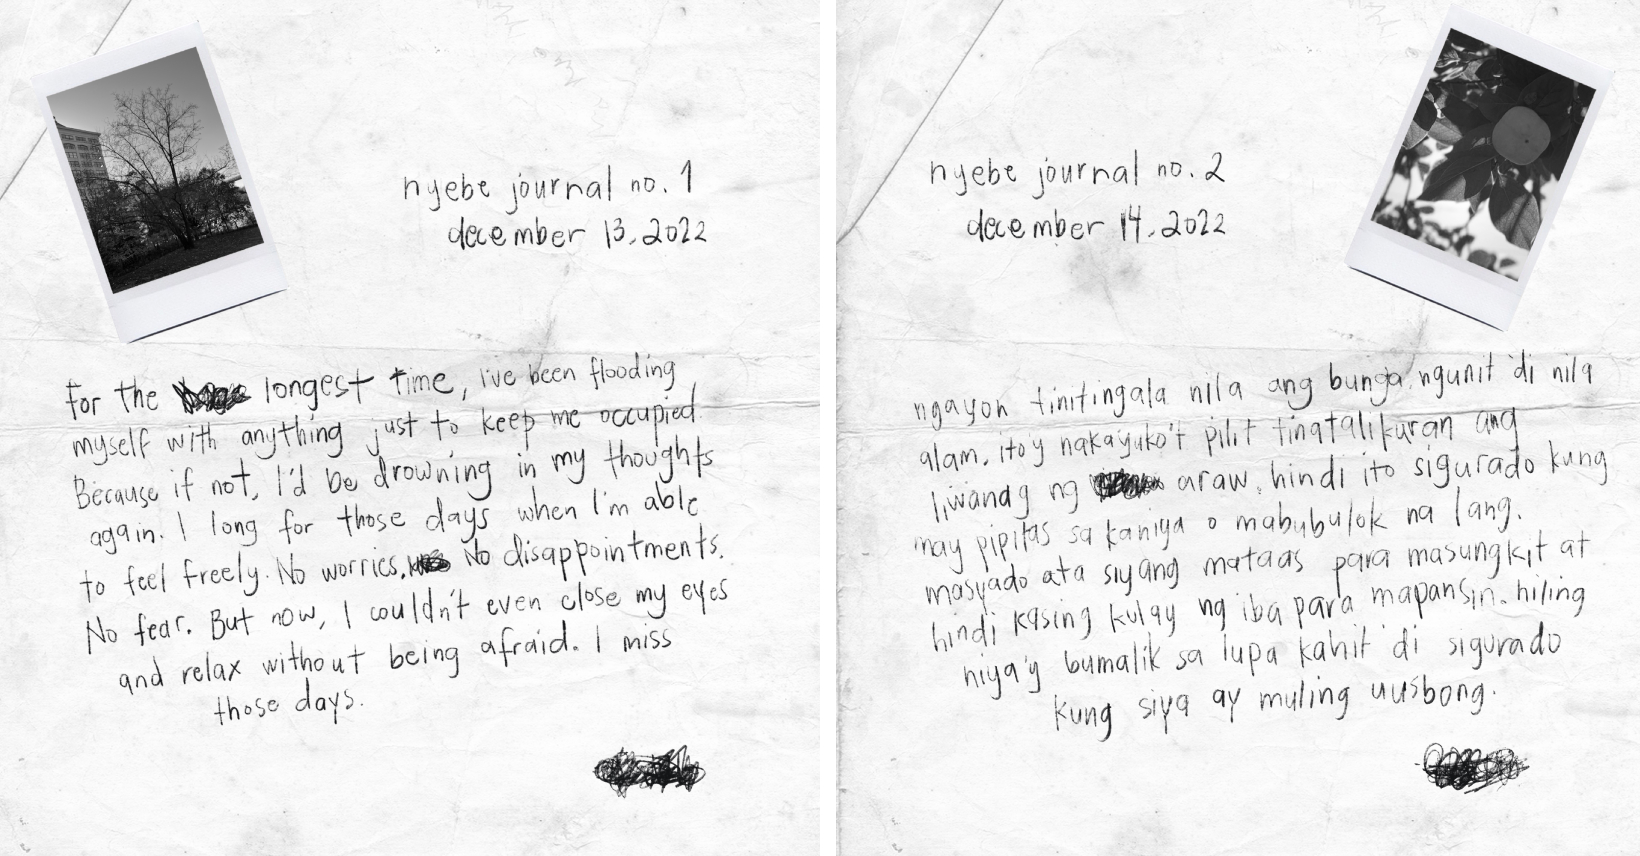 nyebe journal no. 1
december 13, 2022
for the longest time, i've been flooding
myself with anything just to keep me occupied.
Because if not, I'd be drowning in my thoughts
again. I long for those days when I'm able
to feel freely. No worries. No disappointments.
No fear. But now, I couldn't even close my eyes
and relax without being afraid. I miss
those days.
nyebe journal no. 2
december 14, 2022
ngayon tinitingala nila ang bunga, ngunit di nila
alam, ito'y nakayuko't pilit tinatalikuran ang
liwanag ng araw. hindi ito sigurado kung
may pipitas sa kaniya o mabubulok na lang.
masyado ata siyang mataas para masungkit at
hindi kasing kulay ng iba para mapansin. hiling
niya'y bumalik sa lupa kahit di sigurado
kung siya ay muling uusbong.